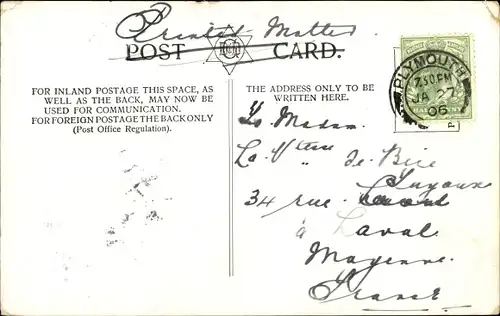 Printed Matter
POST CARD.
FOR INLAND POSTAGE THIS SPACE, AS
WELL AS THE BACK, MAY NOW BE
USED FOR COMMUNICATION.
FOR FOREIGN POSTAGE THE BACK ONLY
(Post Office Regulation).
THE ADDRESS ONLY TO BE
WRITTEN HERE.
PLYMOUTH
7.30 PM
JA 27
06
Madame
La Vtesse de
34 rue
à Laval
Mayenne
France